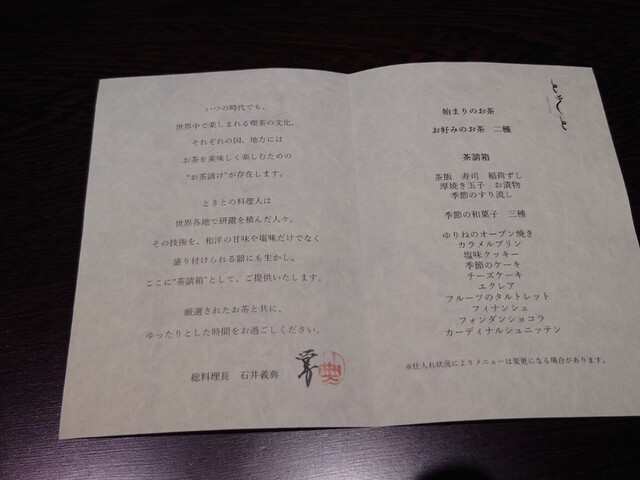 いつの時代でも、
世界中で楽しまれる喫茶の文化。
それぞれの国、地方には
お茶を美味しく楽しむための
"お茶請け"が存在します。
ときとの料理人は
世界各地で研鑽を積んだ人々。
その技術を、和洋の甘味や塩味だけでなく
盛り付けられる器にも生かし。
ここに"茶請箱"として、ご提供いたします。
厳選されたお茶と共に、
ゆったりとした時間をお過ごしください。
総料理長 石井義典
始まりのお茶
お好みのお茶 二種
茶請箱
茶飯 寿司 稲荷ずし
厚焼き玉子 お漬物
季節のすり流し
季節の和菓子 三種
ゆりねのオーブン焼き
カラメルプリン
塩味クッキー
季節のケーキ
チーズケーキ
エクレア
フルーツのタルトレット
フィナンシェ
フォンダンショコラ
カーディナルシュニッテン
※仕入れ状況によりメニューは変更になる場合があります。